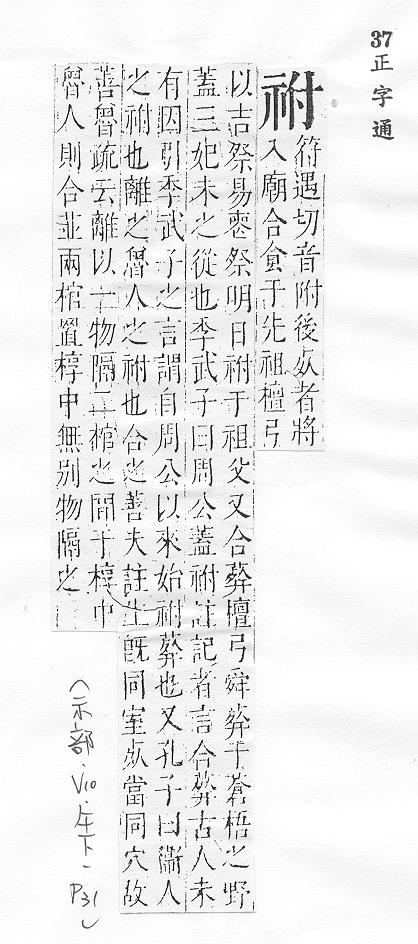 37正字通
祔
符遇切音附後死者將
入廟合食于先祖檀弓
以吉祭易喪祭明日祔于祖父又合葬檀弓舜葬于蒼梧之野
蓋三妃未之從也季武子曰周公蓋祔註記者言合葬古人未
有因引季武子之言謂自周公以來始祔葬也又孔子曰衞人
之祔也離之魯人之祔也合之善夫註生旣同室死當同穴故
善魯疏云離以一物隔二棺之間于椁中
魯人則合並兩棺置椁中無別物隔之
(示部·V10·午下-P31)